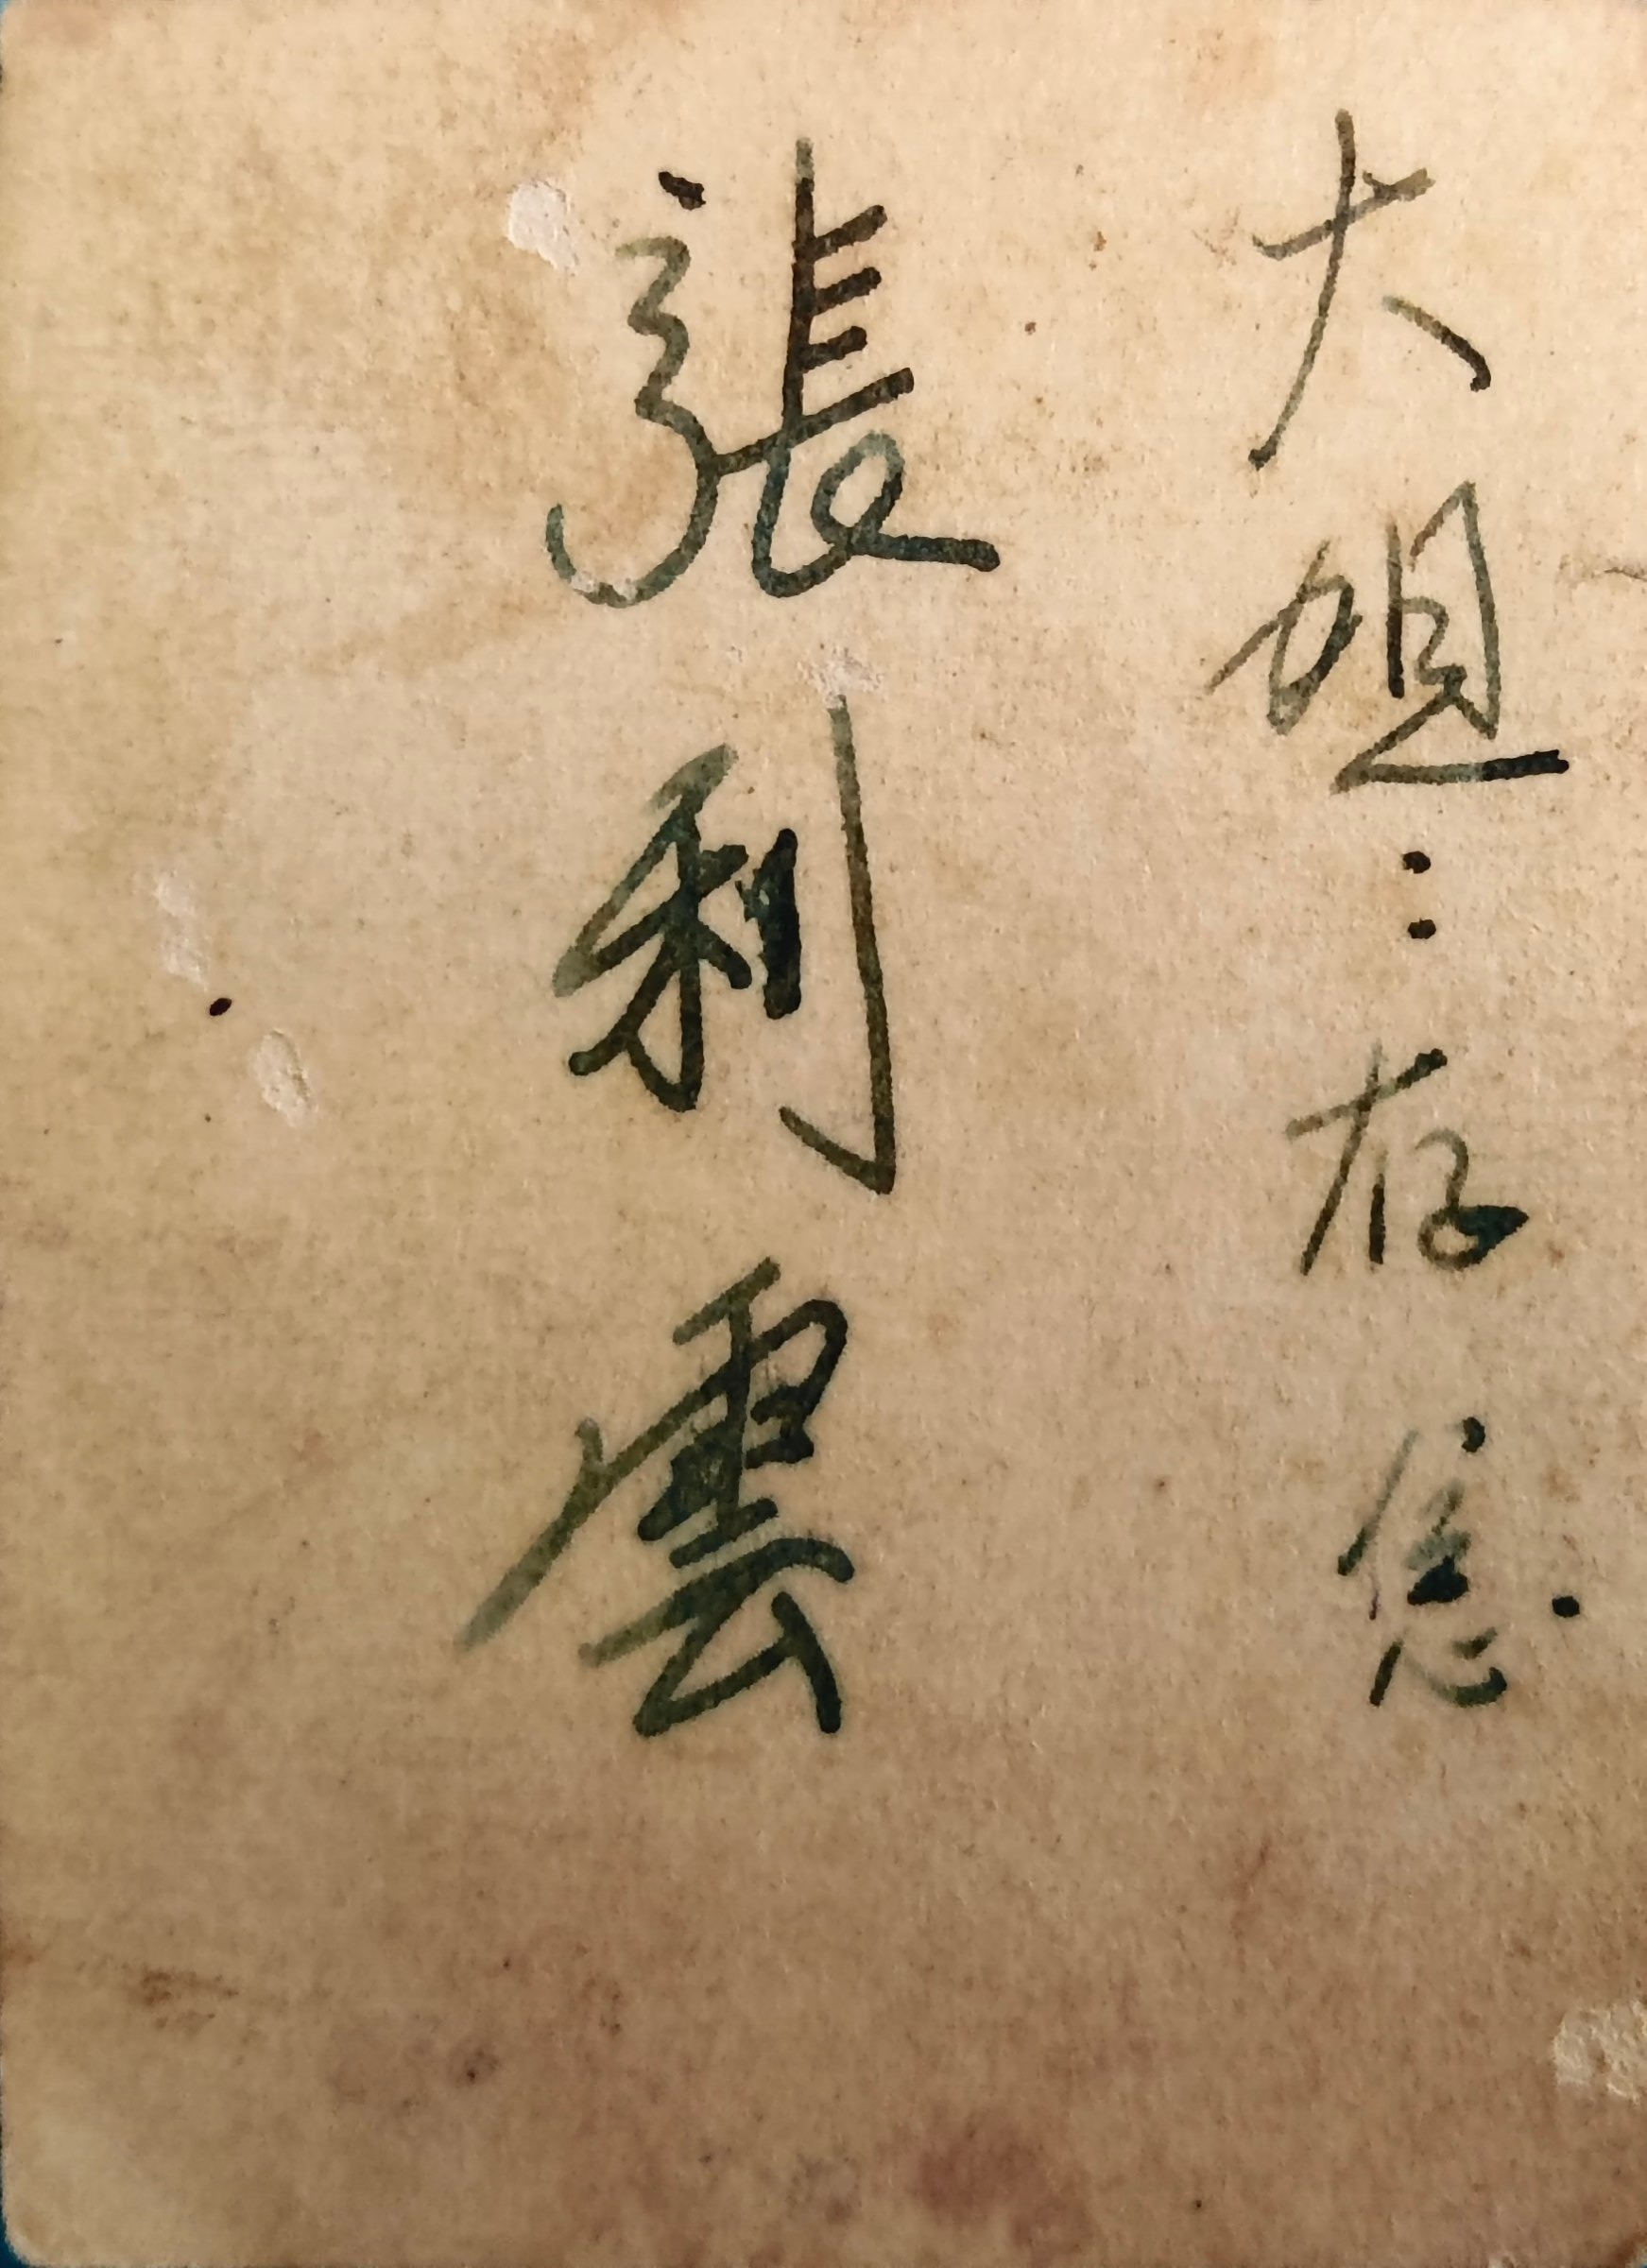 大姐：存念.
張利雲